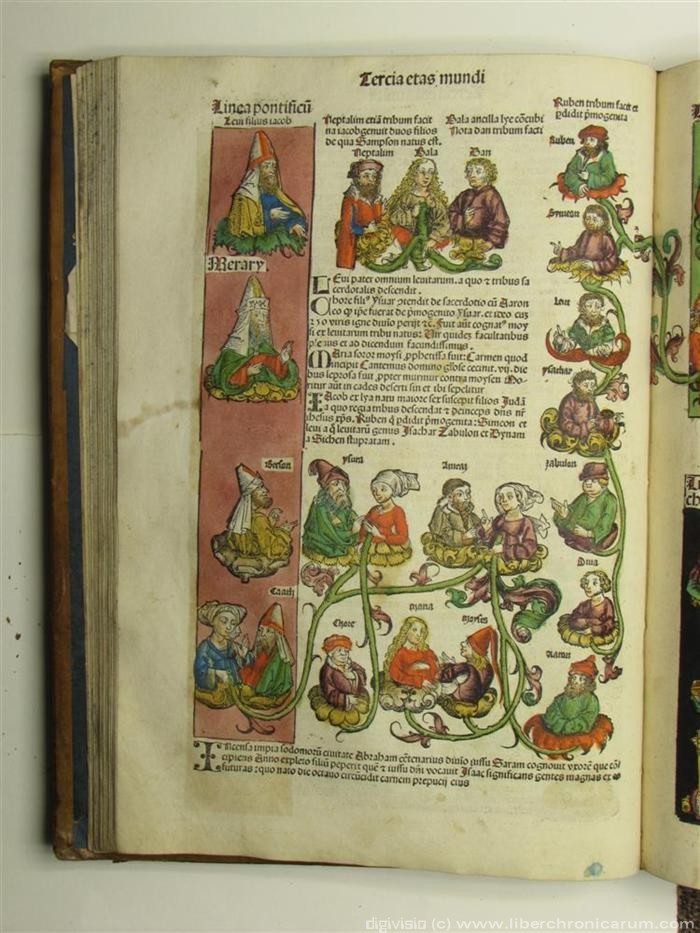 Tercia etas mundi
Linea pontificũ
Leui filius iacob
Merary
Gerson
Caath
Neptalim etiã tribum facit
na iacob genuit duos filios
de qua Sampson natus est.
Neptalim
Bala ancilla lye cõcubi
Nota dan tribum facti
Bala
Dan
Ruben tribum facit et
ꝑdidit p̃mogenita
Ruben
Symeon
Leui
Ysachar
Zabulon
Dina
Aaron
LEui pater omnium leuitarum. a quo ⁊ tribus sa
cerdotalis descendit.
Chore filiꝰ ysuar ↄtendit de sacerdotio cũ Aaron
eo ꝙ ip̃e fuerat de p̃mogenito ysuar. et ideo cuz
250 viris igne diuĩo perijt ⁊c̃. Fuit aũt cognatꝰ moy
si et leuitarum tribu natus: Vir quidez facultatibus
et ad dicendum facundissimus.
MAria soror moysi ꝓphetissa fuit: Carmen quod
incipit Cantemus domino glose cecinit. vij. die
bus leprosa fuit ꝓpter murmur contra moysen Mo
ritur aũt in cades deserti sin et ibi sepelitur
IAcob ex lya natu maiore ser suscepit filios Judã
a quo regia tribus descendat ⁊ deinceps dñs nr̃
ihesus xp̃s. Ruben ꝙ ꝑdidit p̃mogenita: Simeon et
leui a ꝗ leuitarũ genus Isachar Zabulon et Dynam
a Sichen stupratam.
Ysuar
Amram
Chore
Maria
Moyses
INcensa impia sodomorũ ciuitate Abraham cẽtenarius diuĩo iussu Saram cognouit vxorẽ que cõ
cipiens Anno expleto filiũ peperit quẽ ⁊ iussu dñi vocauit Isaac significans gentes magnas ex eo
futuras: quo nato die octauo circũcidit carnem prepucij eius
digivisio (c) www.liberchronicarum.com